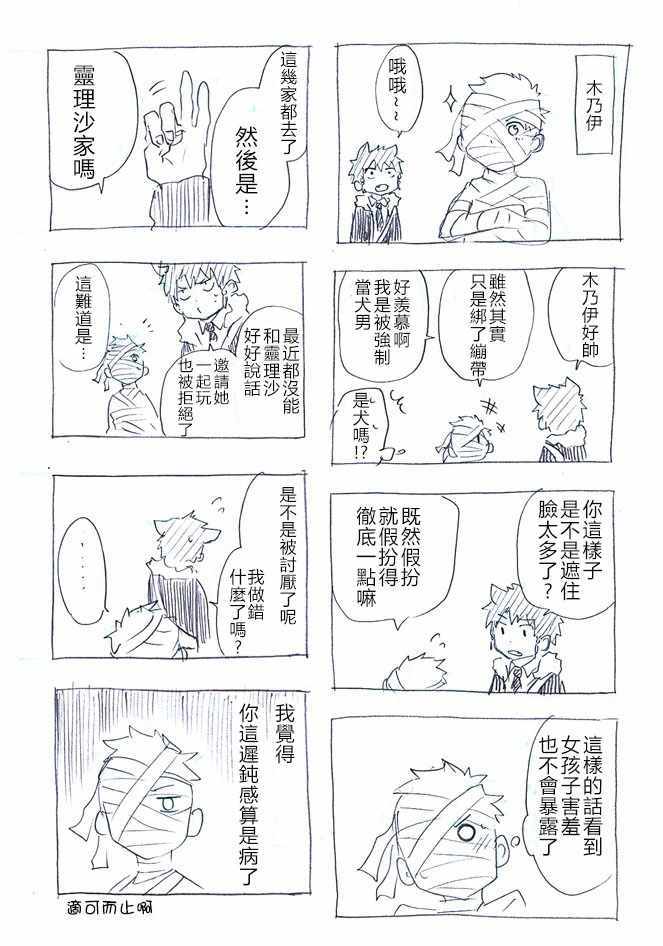 木乃伊
哦哦~~
木乃伊好帥
雖然其實
只是綁了繃帶
好羨慕啊
我是被強制
當犬男
是犬嗎!?
你這樣子
是不是遮住
臉太多了?
既然假扮
就假扮得
徹底一點嘛
這樣的話看到
女孩子害羞
也不會暴露了
這幾家都去了
然後是…
靈理沙家嗎
最近都沒能
和靈理沙
好好說話
邀請她
一起玩
也被拒絕了
這難道是…
是不是被討厭了呢
我做錯
什麼了嗎?
.....
我覺得
你這遲鈍感算是病了
適可而止啊